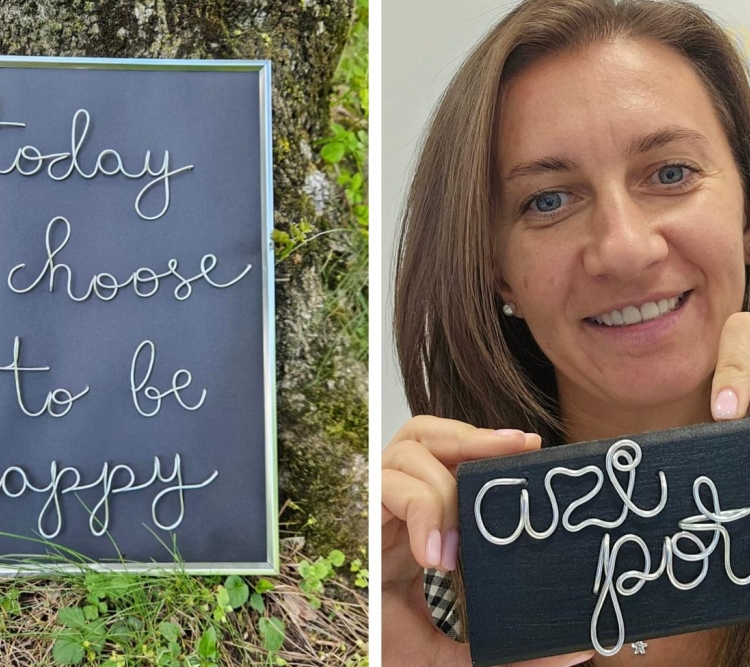 today
choose
to be
appy
azi
pot